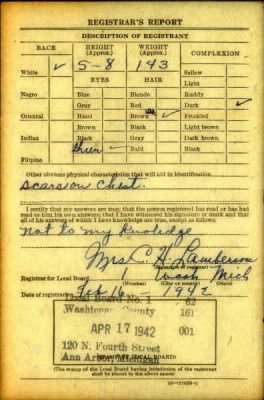 REGISTRAR'S REPORT
DESCRIPTION OF REGISTRANT
RACE HEIGHT (Approx.) WEIGHT (Approx.) COMPLEXION
White ✓ 5-8 143 Sallow
EYES HAIR Light
Negro Blue Blonde Ruddy
Gray Red Dark ✓
Oriental Hazel Brown Freckled
Brown Black Light brown
Indian Black Gray Dark brown
Green ✓ Bald Black
Filipino
Other obvious physical characteristics that will aid in identification
Scars on Chest.
I certify that my answers are true; that the person registered has read or has had
read to him his own answers; that I have witnessed his signature or mark and that
all of his answers of which I have knowledge are true, except as follows:
not to my knolidge
Mrs C. H. Lamberson
Registrar for Local Board 1 Wash Mich
(Number) (City or county)
Date of registration Feb 16 1942
Local Board No. 1 62
Washtenaw County 161
APR 17 1942 001
120 N. Fourth Street
Ann Arbor, Michigan
(STAMP OF LOCAL BOARD)
(The stamp of the Local Board having jurisdiction of the registrant
shall be placed in the above space.)